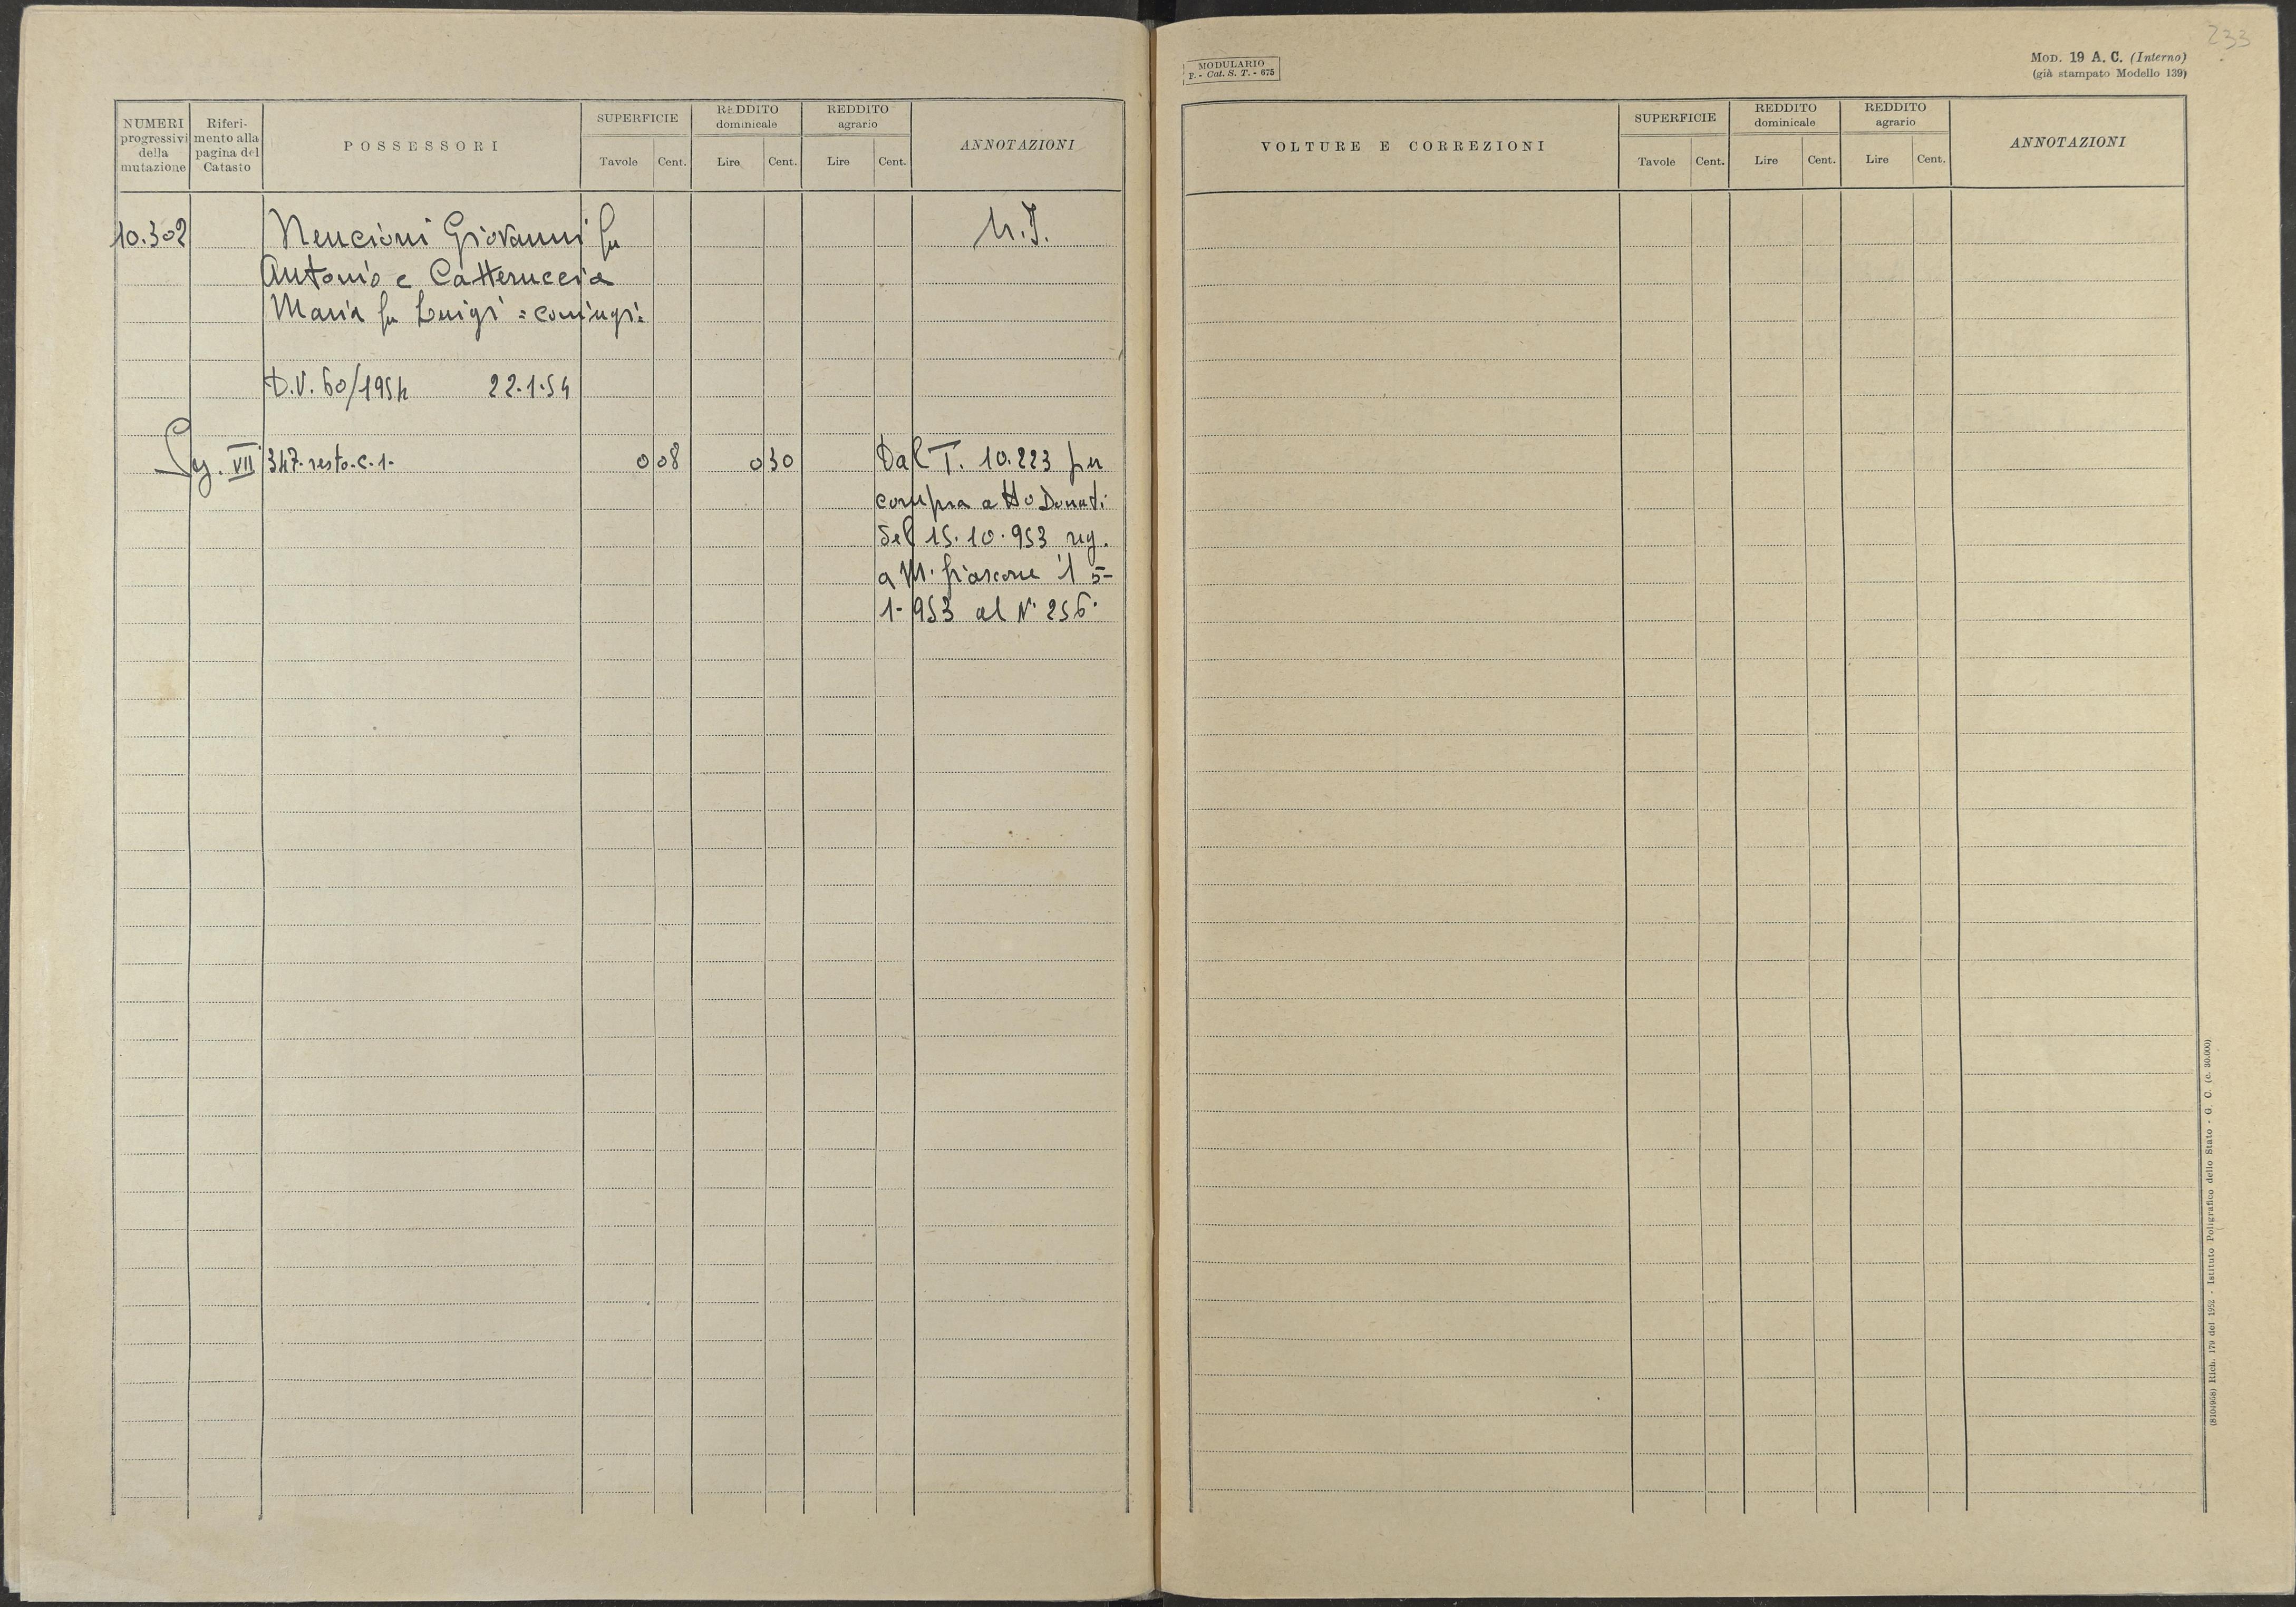 NUMERI progressivi della mutazione
Riferimento alla pagina del Catasto
POSSESSORI
SUPERFICIE
Tavole Cent.
REDDITO dominicale
Lire Cent.
REDDITO agrario
Lire Cent.
ANNOTAZIONI
10.302 Nencioni Giovanni fu M.F.
Antonio e Catteruccia
Maria fu Luigi = coniugi =
D.V. 60/1954 22.1.54
Sez. VII 347. resto. c. 1. 0 08 0 30 Dal T. 10.223 per
compra atto Donati
del 15.10.953 reg.
a M. fiascone il 5-
1-953 al N° 256.
233
MODULARIO
F. - Cat. S. T. - 675
MOD. 19 A. C. (Interno)
(già stampato Modello 139)
VOLTURE E CORREZIONI
SUPERFICIE
Tavole Cent.
REDDITO dominicale
Lire Cent.
REDDITO agrario
Lire Cent.
ANNOTAZIONI
(8104958) Rich. 170 del 1952 - Istituto Poligrafico dello Stato - G. C. (c. 30.000)